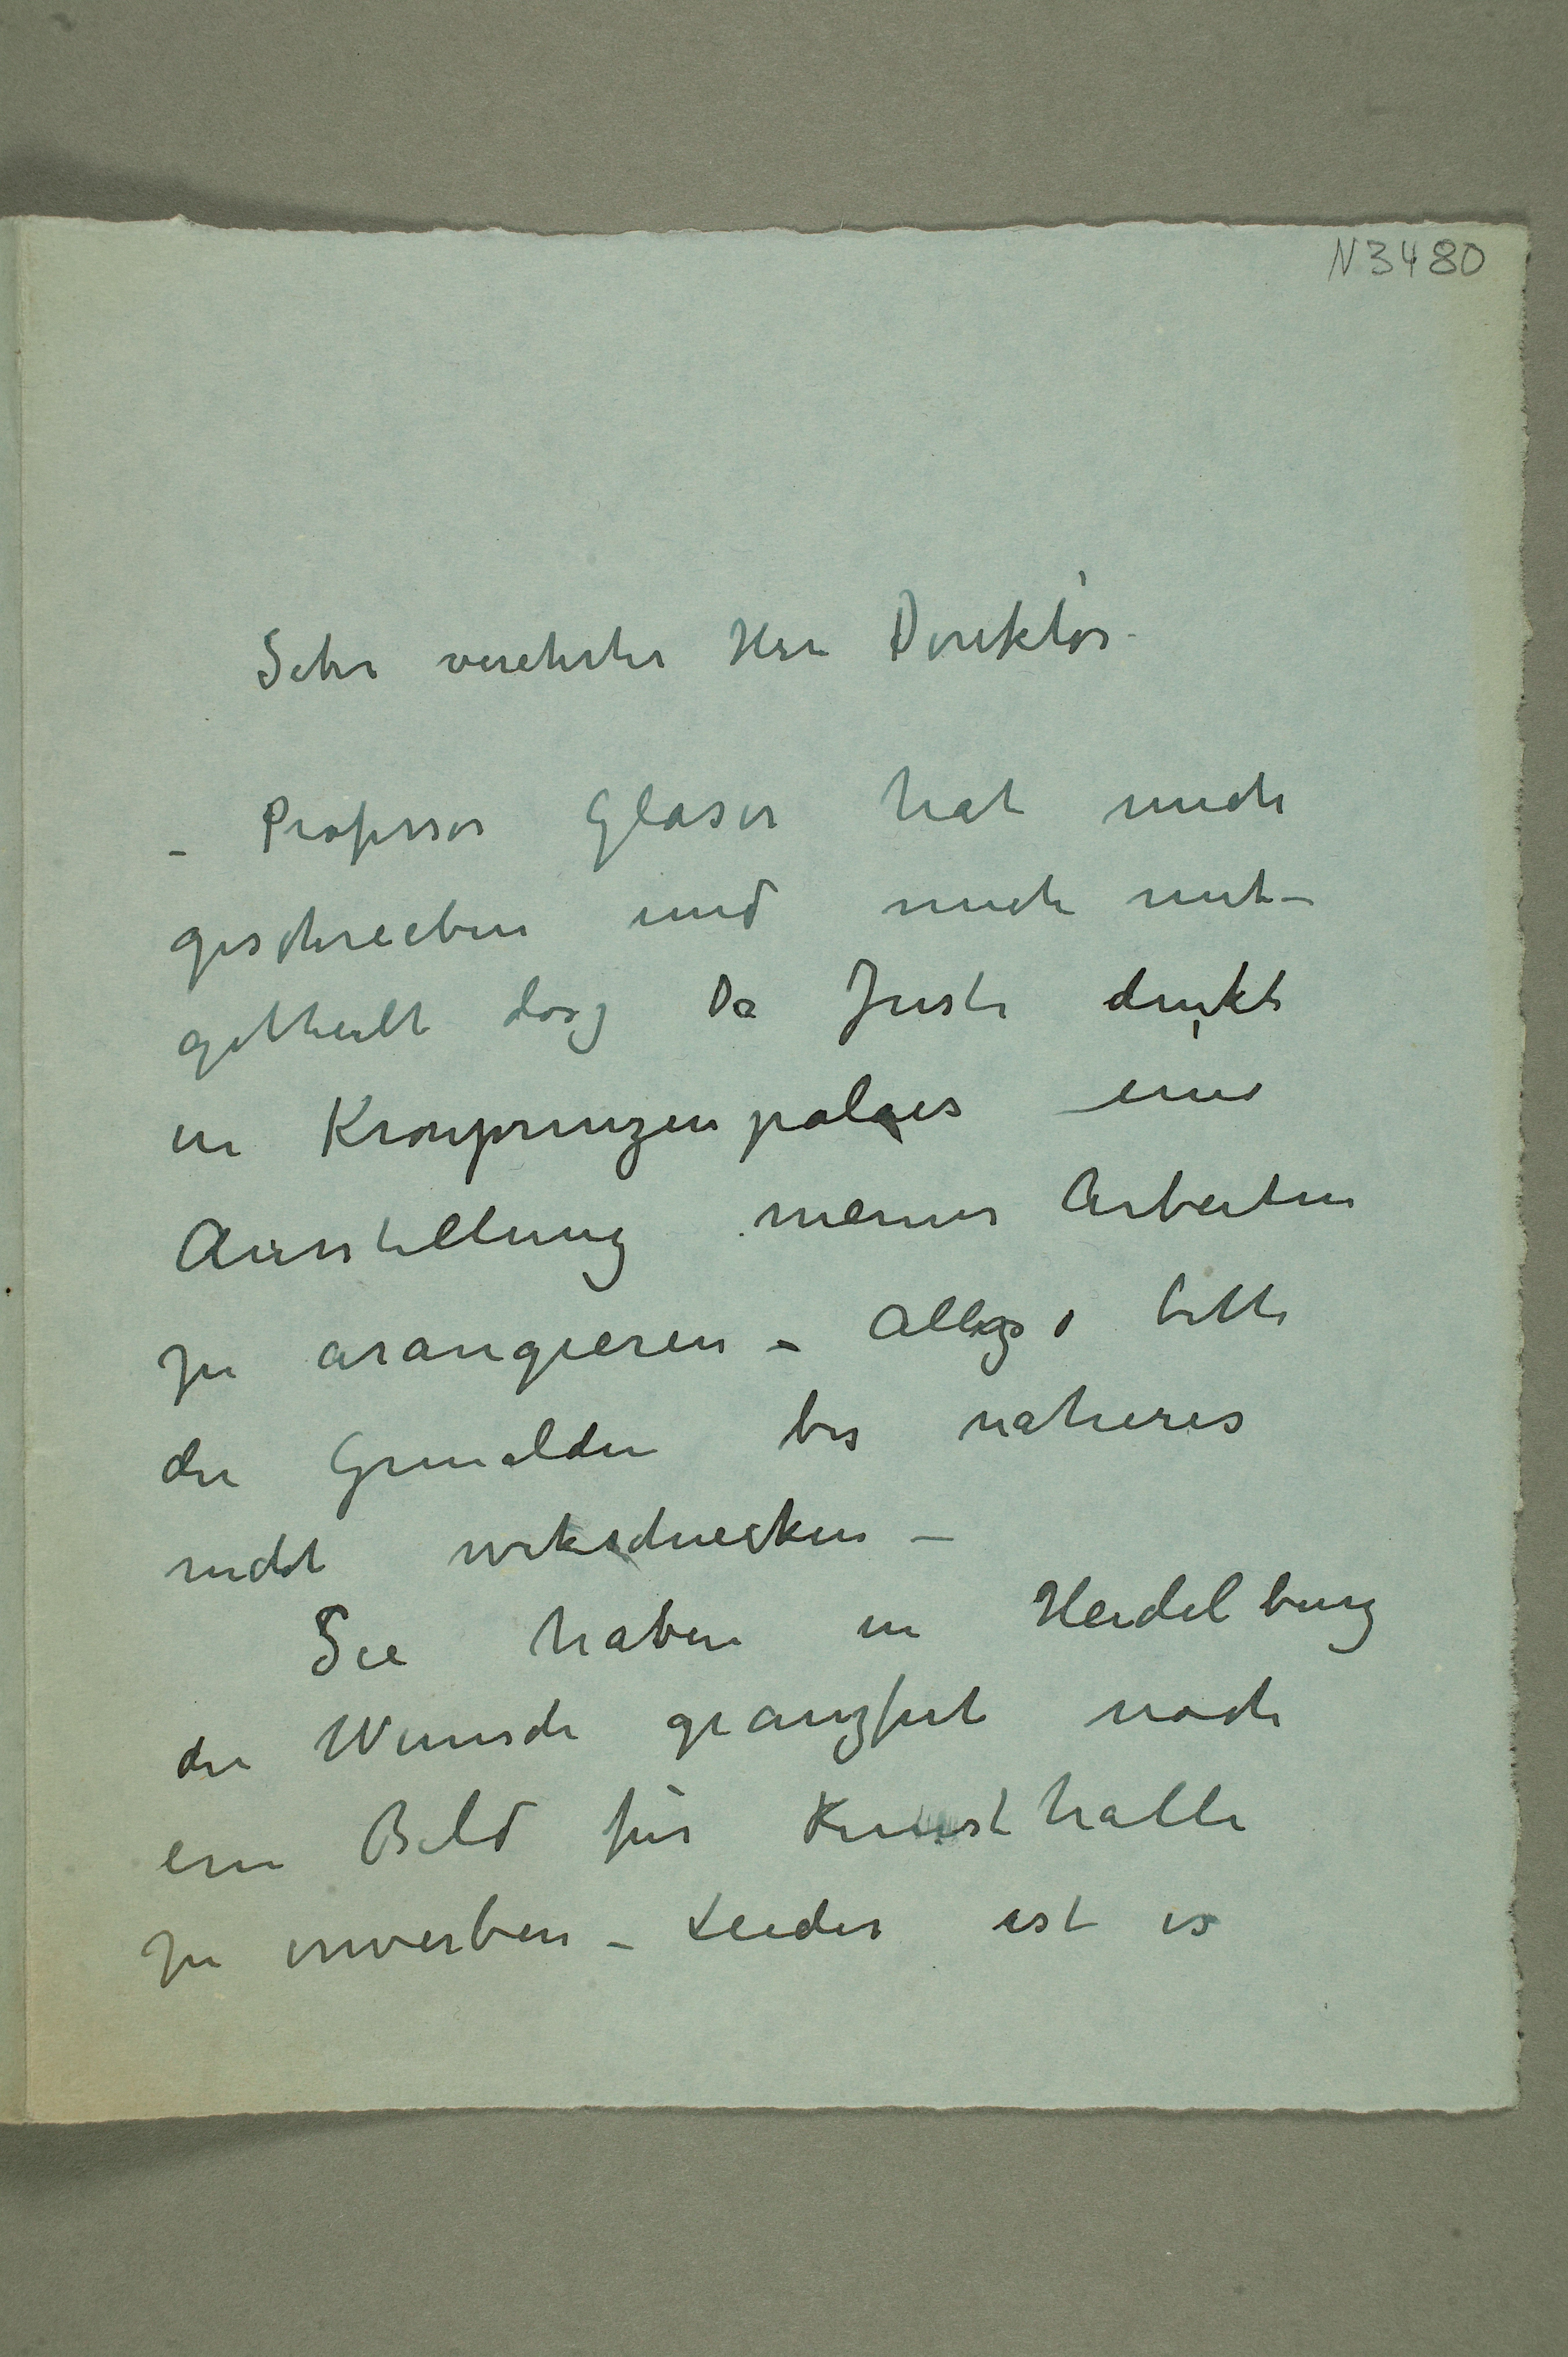 N 3480
Sehr verehrter Herr Direktor
– Professor Glaser hat mich
geschreeben und mich mit-
getheilt dasz Dr Justi denkt
in Kronprinzenpalaes eine
Ausstellung meiner Arbeiten
zu arangieren – Allzso bitte
die Gemalden bis naheres
nicht wekschiecken –
See haben in Heidelburg
die Wunsch geaüzfert noch
ein Bild für Kunsthalle
zu erwerben – Leider ist es